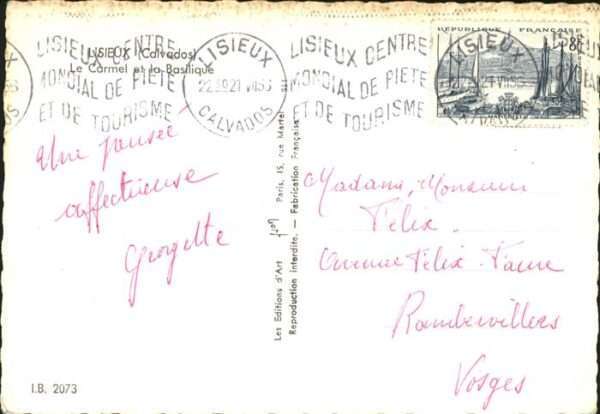 LISIEUX (Calvados)
Le Carmel et la Basilique
LISIEUX CENTRE
MONDIAL DE PIETE
ET DE TOURISME
LISIEUX
CALVADOS
LISIEUX CENTRE
MONDIAL DE PIETE
ET DE TOURISME
REPUBLIQUE FRANÇAISE
LISIEUX
Une pensée
affectueuse
Georgette
Les Editions d'Art Paris, 15, rue Martel
Reproduction interdite. — Fabrication Française
Madame, Monsieur
Félix
Avenue Félix Faure
Rambervillers
Vosges
I.B. 2073